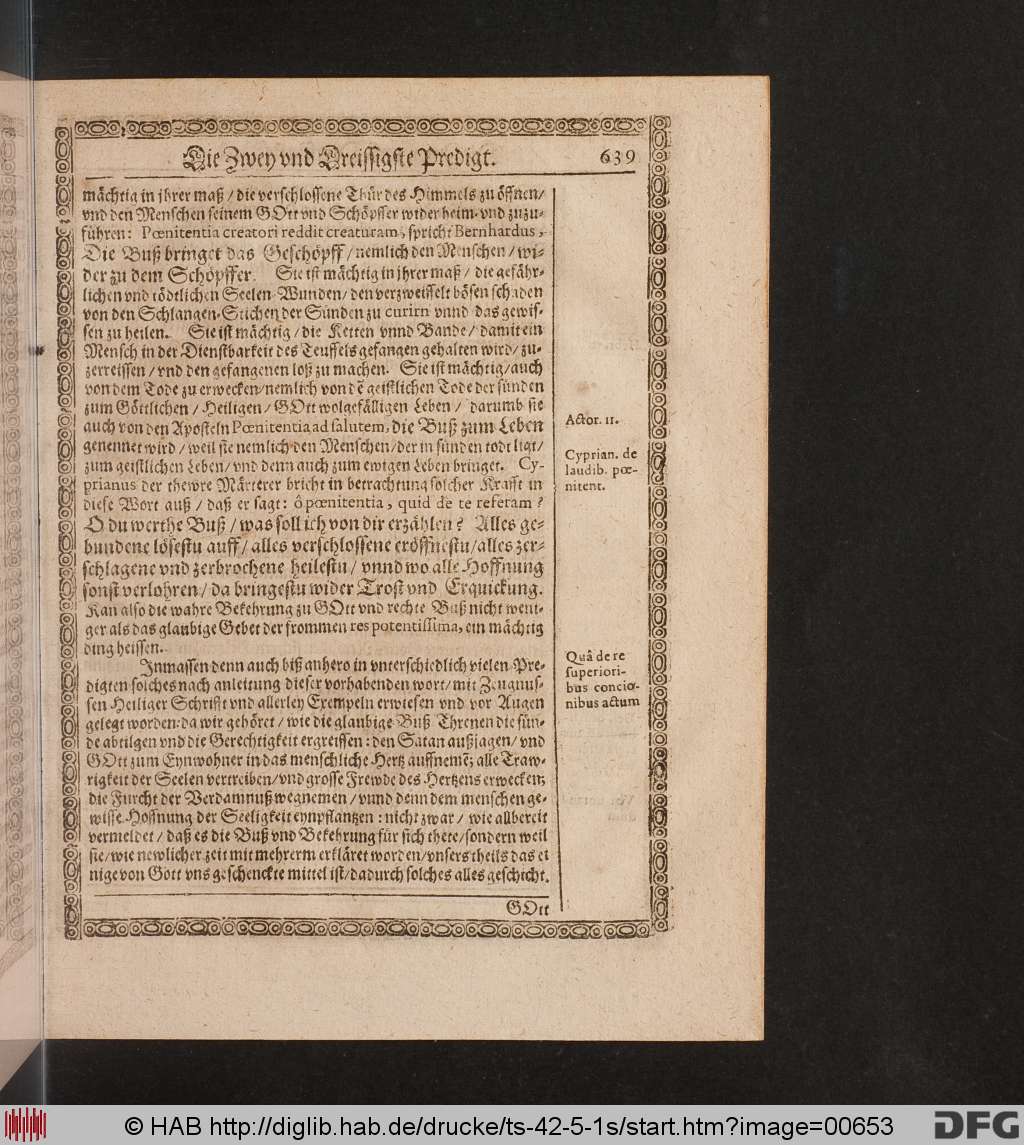 Die Zwey vnd Dreissigste Predigt. 639
mächtig in jhrer maß / die verschlossene Thür des Himmels zu öffnen /
vnd den Menschen seinem GOtt vnd Schöpffer wider heim- vnd zuzu-
führen: Pœnitentia creatori reddit creaturam, spricht Bernhardus,
Die Buß bringet das Geschöpff / nemlich den Menschen / wi-
der zu dem Schöpffer. Sie ist mächtig in jhrer maß / die gefähr-
lichen vnd tödtlichen Seelen-Wunden / den verzweiffelt bösen schaden
von den Schlangen-Stichen der Sünden zu curirn vnnd das gewis-
sen zu heilen. Sie ist mächtig / die Ketten vnnd Bande / damit ein
Mensch in der Dienstbarkeit des Teuffels gefangen gehalten wird / zu-
zerreissen / vnd den gefangenen loß zu machen. Sie ist mächtig / auch
von dem Tode zu erwecken / nemlich von dẽ geistlichen Tode der sünden
zum Göttlichen / Heiligen / GOtt wolgefälligen Leben / darumb sie
auch von den Aposteln Pœnitentia ad salutem, die Buß zum Leben
genennet wird / weil sie nemlich den Menschen / der in sünden todt ligt /
zum geistlichen Leben / vnd denn auch zum ewigen Leben bringet. Cy-
prianus der thewre Märterer bricht in betrachtung solcher Krafft in
diese Wort auß / daß er sagt: ô pœnitentia, quid de te referam?
O du werthe Buß / was soll ich von dir erzählen? Alles ge-
bundene lösestu auff / alles verschlossene eröffnestu / alles zer-
schlagene vnd zerbrochene heilestu / vnnd wo alle Hoffnung
sonst verlohren / da bringestu wider Trost vnd Erquickung.
Kan also die wahre Bekehrung zu GOtt vnd rechte Buß nicht weni-
ger als das glaubige Gebet der frommen res potentissima, ein mächtig
ding heissen.
Inmassen denn auch biß anhero in vnterschiedlich vielen Pre-
digten solches nach anleitung dieser vorhabenden wort / mit Zeugnus-
sen Heiliger Schrifft vnd allerley Exempeln erwiesen vnd vor Augen
gelegt worden: da wir gehöret / wie die glaubige Buß Threnen die sün-
de abtilgen vnd die Gerechtigkeit ergreiffen: den Satan außjagen / vnd
GOtt zum Eynwohner in das menschliche Hertz auffnemẽ; alle Traw-
rigkeit der Seelen vertreiben / vnd grosse Frewde des Hertzens erwecken;
die Furcht der Verdamnuß wegnemen / vnnd denn dem menschen ge-
wisse Hoffnung der Seeligkeit eynpflantzen: nicht zwar / wie allbereit
vermeldet / daß es die Buß vnd Bekehrung für sich thete / sondern weil
sie / wie newlicher zeit mit mehrerm erkläret worden / vnsers theils das ei
nige von Gott vns geschenckte mittel ist / dadurch solches alles geschicht.
GOtt
Actor. 11.
Cyprian. de
laudib. pœ-
nitent.
Quâ de re
superiori-
bus concio-
nibus actum
© HAB http://diglib.hab.de/drucke/ts-42-5-1s/start.htm?image=00653
DFG